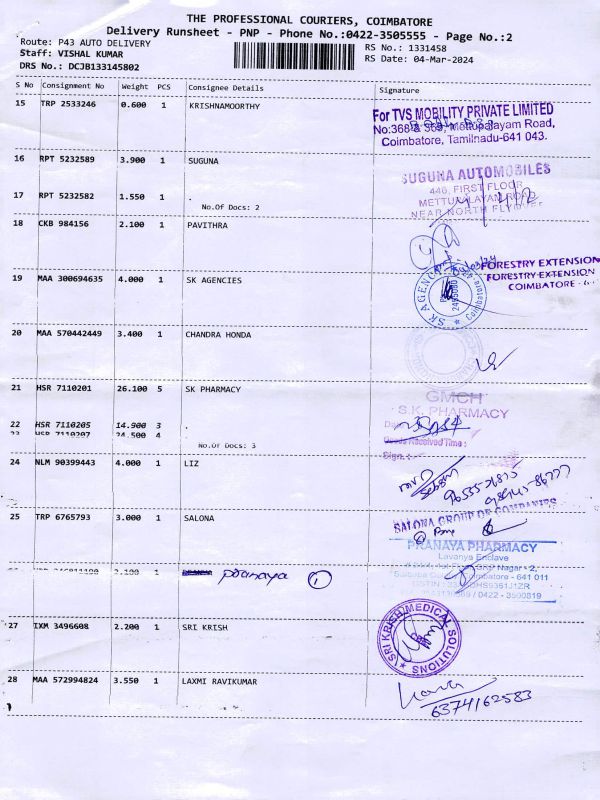 THE PROFESSIONAL COURIERS, COIMBATORE
Delivery Runsheet - PNP - Phone No.:0422-3505555 - Page No.:2
Route: P43 AUTO DELIVERY
RS No.: 1331458
Staff: VISHAL KUMAR
RS Date: 04-Mar-2024
DRS No.: DCJB133145802
S No Consignment No Weight PCS Consignee Details Signature
15 TRP 2533246 0.600 1 KRISHNAMOORTHY
For TVS MOBILITY PRIVATE LIMITED
No:368 & 369, Mettupalayam Road,
Coimbatore, Tamilnadu-641 043.
16 RPT 5232589 3.900 1 SUGUNA
SUGUNA AUTOMOBILES
446, FIRST FLOOR
METTUPALAYAM ROAD
NEAR NORTH FLYOVER
17 RPT 5232582 1.550 1 .
No.Of Docs: 2
18 CKB 984156 2.100 1 PAVITHRA
FORESTRY EXTENSION
FORESTRY EXTENSION
COIMBATORE
19 MAA 300694635 4.000 1 SK AGENCIES
SK AGENCIES
Coimbatore
20 MAA 570442449 3.400 1 CHANDRA HONDA
21 HSR 7110201 26.100 5 SK PHARMACY
GMCH
S.K. PHARMACY
22 HSR 7110205 14.900 3
23 HSR 7110207 24.500 4
No.Of Docs: 3
Goods Received Time :
Sign. :
24 NLM 90399443 4.000 1 LIZ
25 TRP 6765793 3.000 1 SALONA
SALONA GROUP OF COMPANIES
PRANAYA PHARMACY
Lavanya Enclave
Coimbatore - 641 011
/ 0422 - 3500819
2.100 1 pranaya 1
27 IXM 3496608 2.200 1 SRI KRISH
SRI KRISH MEDICAL SOLUTIONS
28 MAA 572994824 3.550 1 LAXMI RAVIKUMAR
6374162583